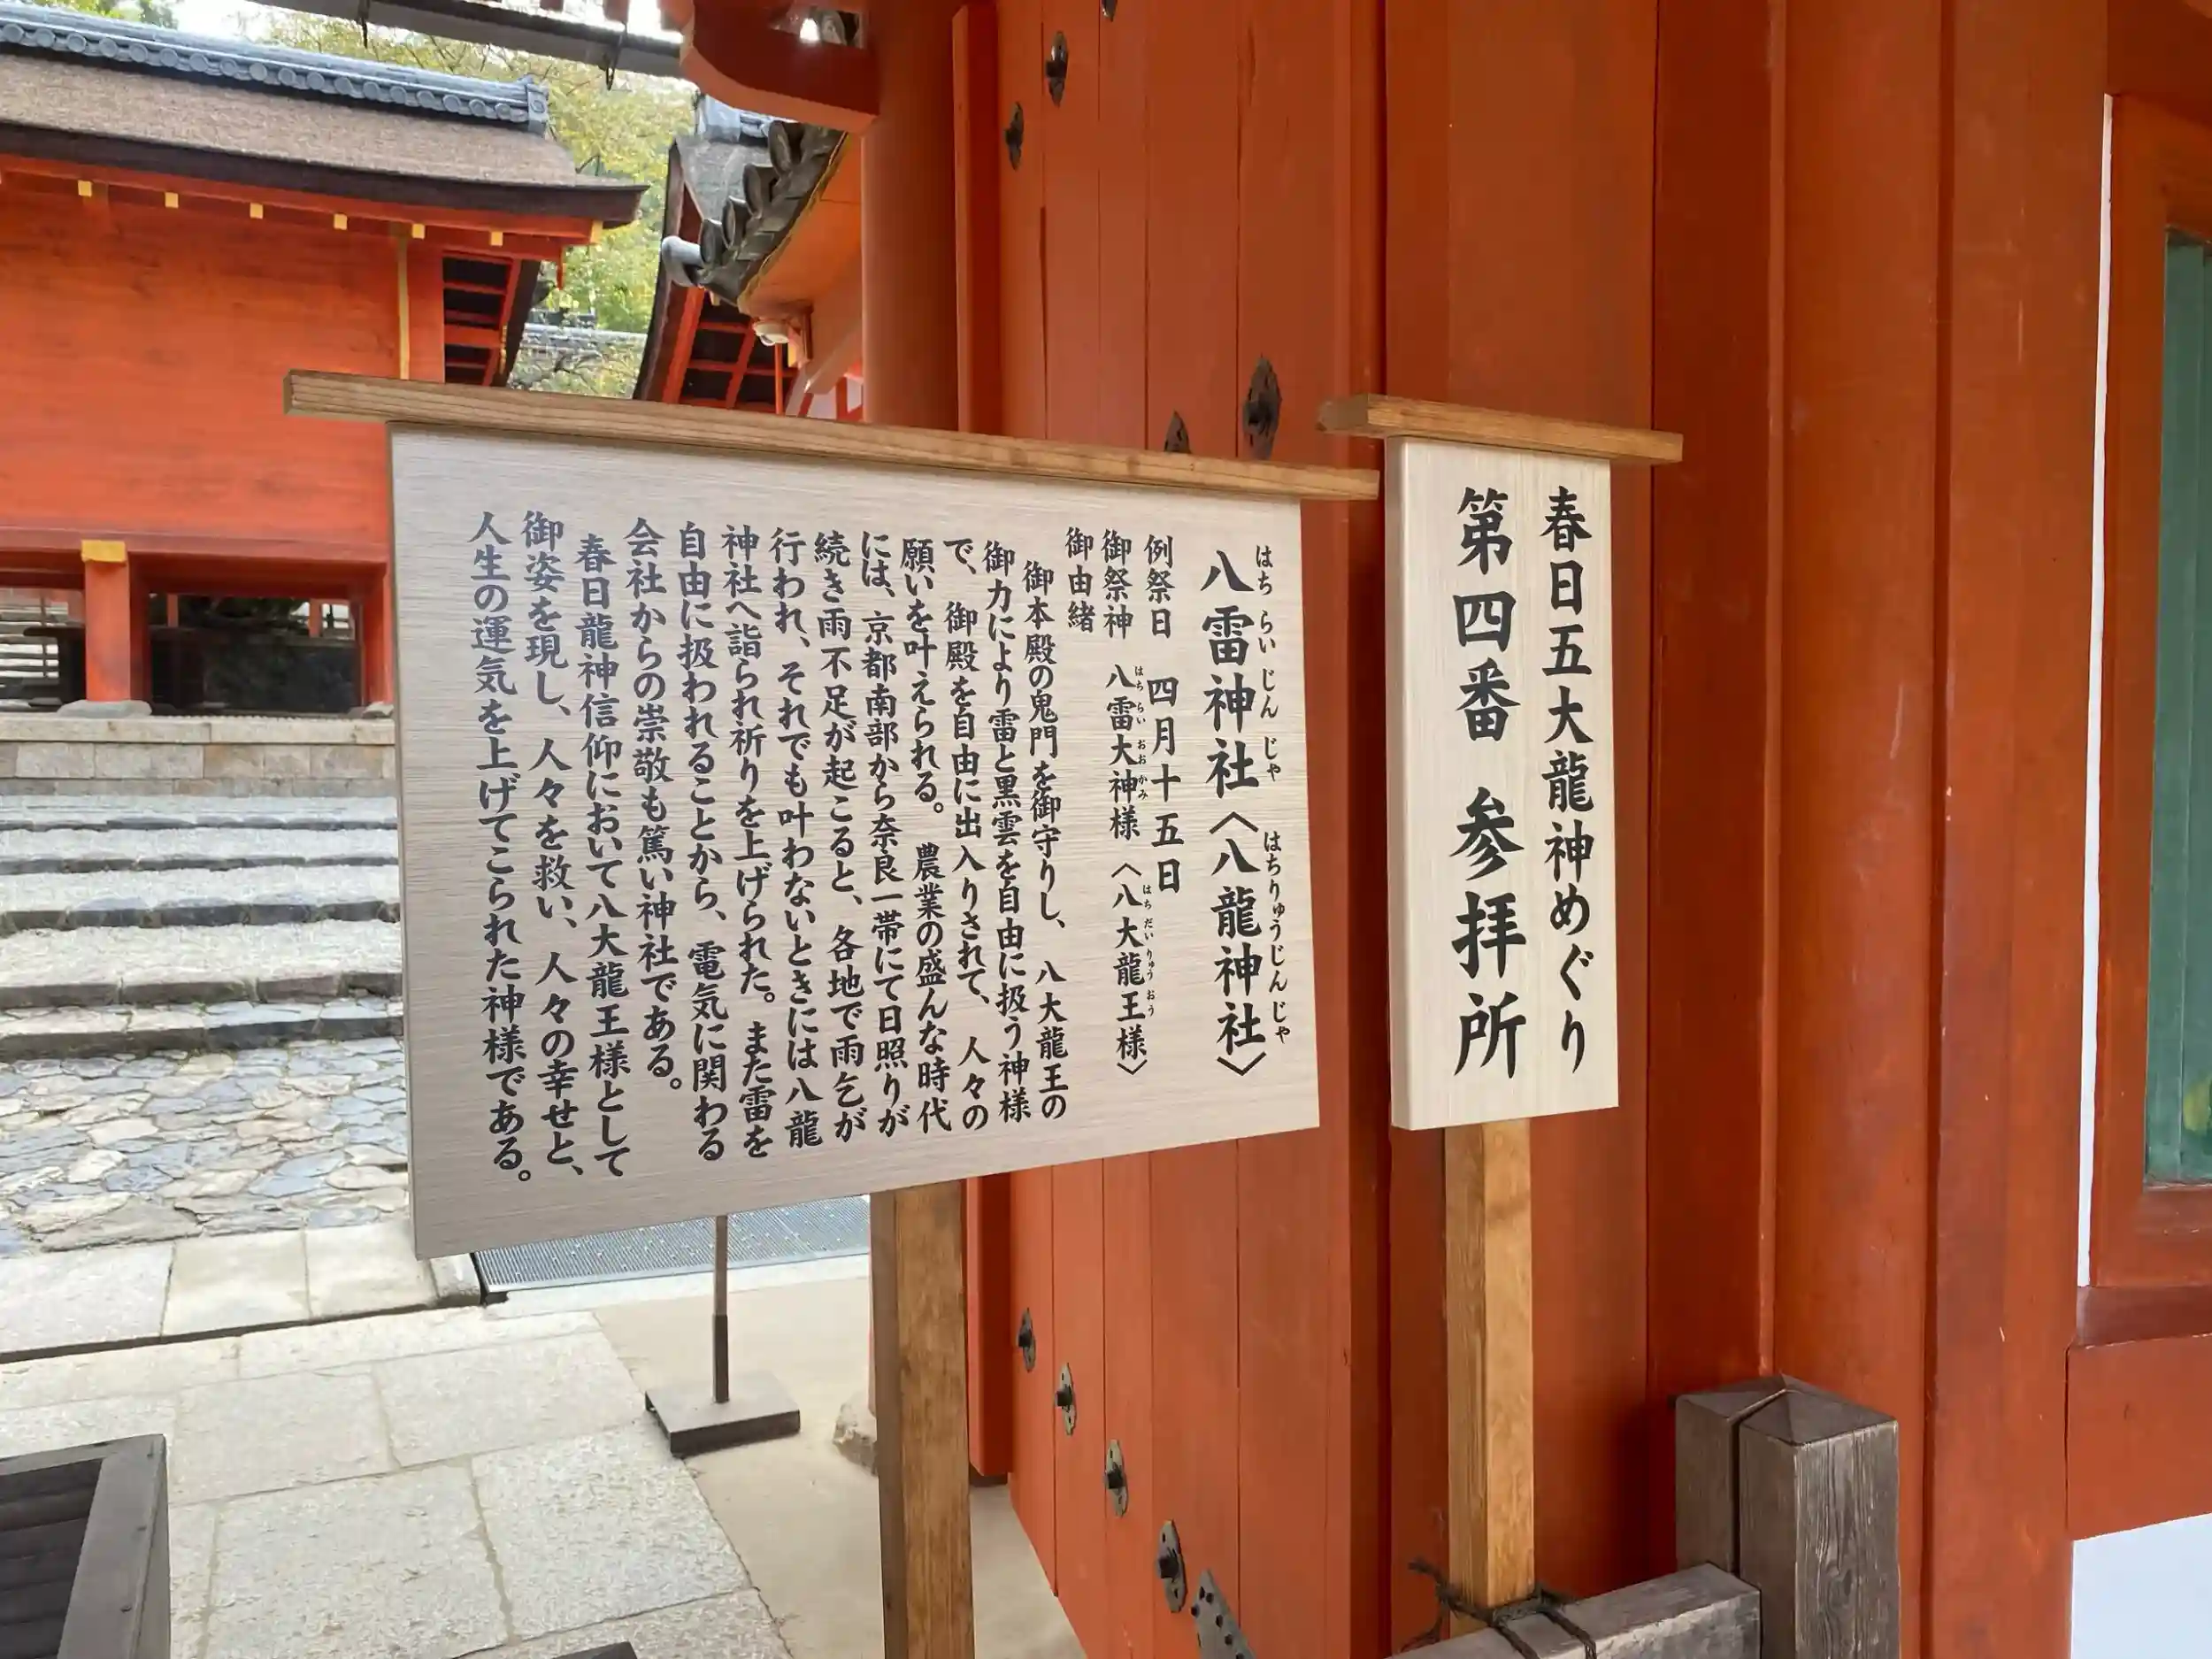 春日五大龍神めぐり
第四番 参拝所
八雷神社〈八龍神社〉
はち らい じん じゃ はちりゅうじんじゃ
例祭日 四月十五日
御祭神 八雷大神様〈八大龍王様〉
はち らい おお かみ はち だい りゅう おう
御由緒
御本殿の鬼門を御守りし、八大龍王の
御力により雷と黒雲を自由に扱う神様
で、御殿を自由に出入りされて、人々の
願いを叶えられる。農業の盛んな時代
には、京都南部から奈良一帯にて日照りが
続き雨不足が起こると、各地で雨乞が
行われ、それでも叶わないときには八龍
神社へ詣られ祈りを上げられた。また雷を
自由に扱われることから、電気に関わる
会社からの崇敬も篤い神社である。
春日龍神信仰において八大龍王様として
御姿を現し、人々を救い、人々の幸せと、
人生の運気を上げてこられた神様である。